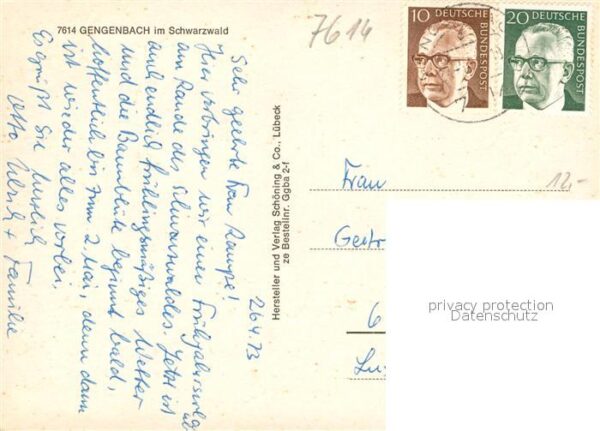 7614 GENGENBACH im Schwarzwald
7614
10 DEUTSCHE BUNDESPOST
20 DEUTSCHE BUNDESPOST
26.4.73
Sehr geehrte Frau Rampe!
Hier verbringen wir einen
am Rande des Schwarzwaldes. Jetzt ist
auch endlich frühlingsmäßiges Wetter
und die Baumblüte beginnt bald,
hoffentlich bis zum 2. Mai, denn dann
ist wieder alles vorbei.
Es grüßt Sie herzlich
Otto Ulrich + Familie
Hersteller und Verlag Schöning & Co., Lübeck
ze Bestellnr. Ggba 2-f
Frau
12,-
6
privacy protection
Datenschutz